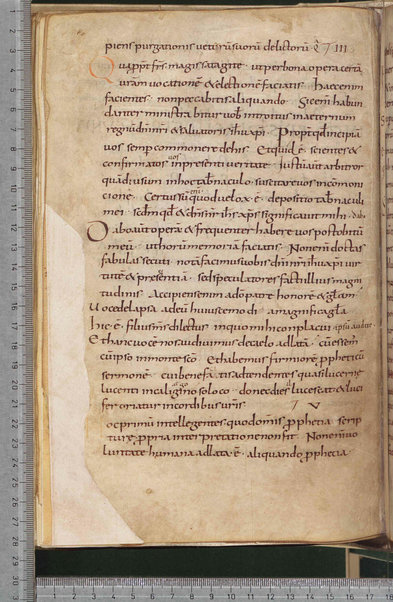 piens purgationis ueterū suorū delictorū · q̄ 7 III
Quapropt̄ frs̄ magis satagite · ut per bona opera certā
urām uocationē & electionē faciatis · Haec enim
facientes · non peccabitis aliquando · Sic enī habun
danter ministrabitur uob̄ introitus in aeternum
regnū dnī nrī & saluatoris ihū xp̄i · Propt̄ qd̄ incipiā
uos semp commonere de his · Et quidē scientes &
confirmatos uos in presenti ueritate · Iustū aut̄ arbitror
quādiu sum in hoc tabernaculo · suscitare uos in commoni
cione · Certus sum quod uelox ē depositio tabnaculi
mei · scdm qd̄ & dns̄ nr̄ ihs̄ xp̄s significauit mihi · dabo
Dabo aut̄ opera & frequenter habere uos post obitū
meū · ut horū memoriā faciatis · Non enī doctas
fabulas secuti · notā facimus uobis dnī nrī ihū xp̄i uir
tutē & presentiā · sed speculatores facti illius magni
tudinis · Accipiens enim a dō patre honorē & glām
Uoce delapsa ad eū huiuscemodi a magnifica glā
hic ē filius ms̄ dilectus in quo mihi conplacui ipsū audite
Et hanc uocē nos audiuimus de caelo adlatā · cū essem̄
cū ipso in monte sc̄o · Et habemus firmiorē ppheticū
sermonē · cui benefacitis adtendentes quasi lucernę
lucenti in caliginoso loco · donec dies lucescat & luci
fer oriatur in cordibus uris̄ · 7 V
oc primū intellegentes quod omis̄ pphetia scrip
turę ppria interpretatione non fit · Non enī uo
luntate humana adlata ē · aliquando pphetia ·